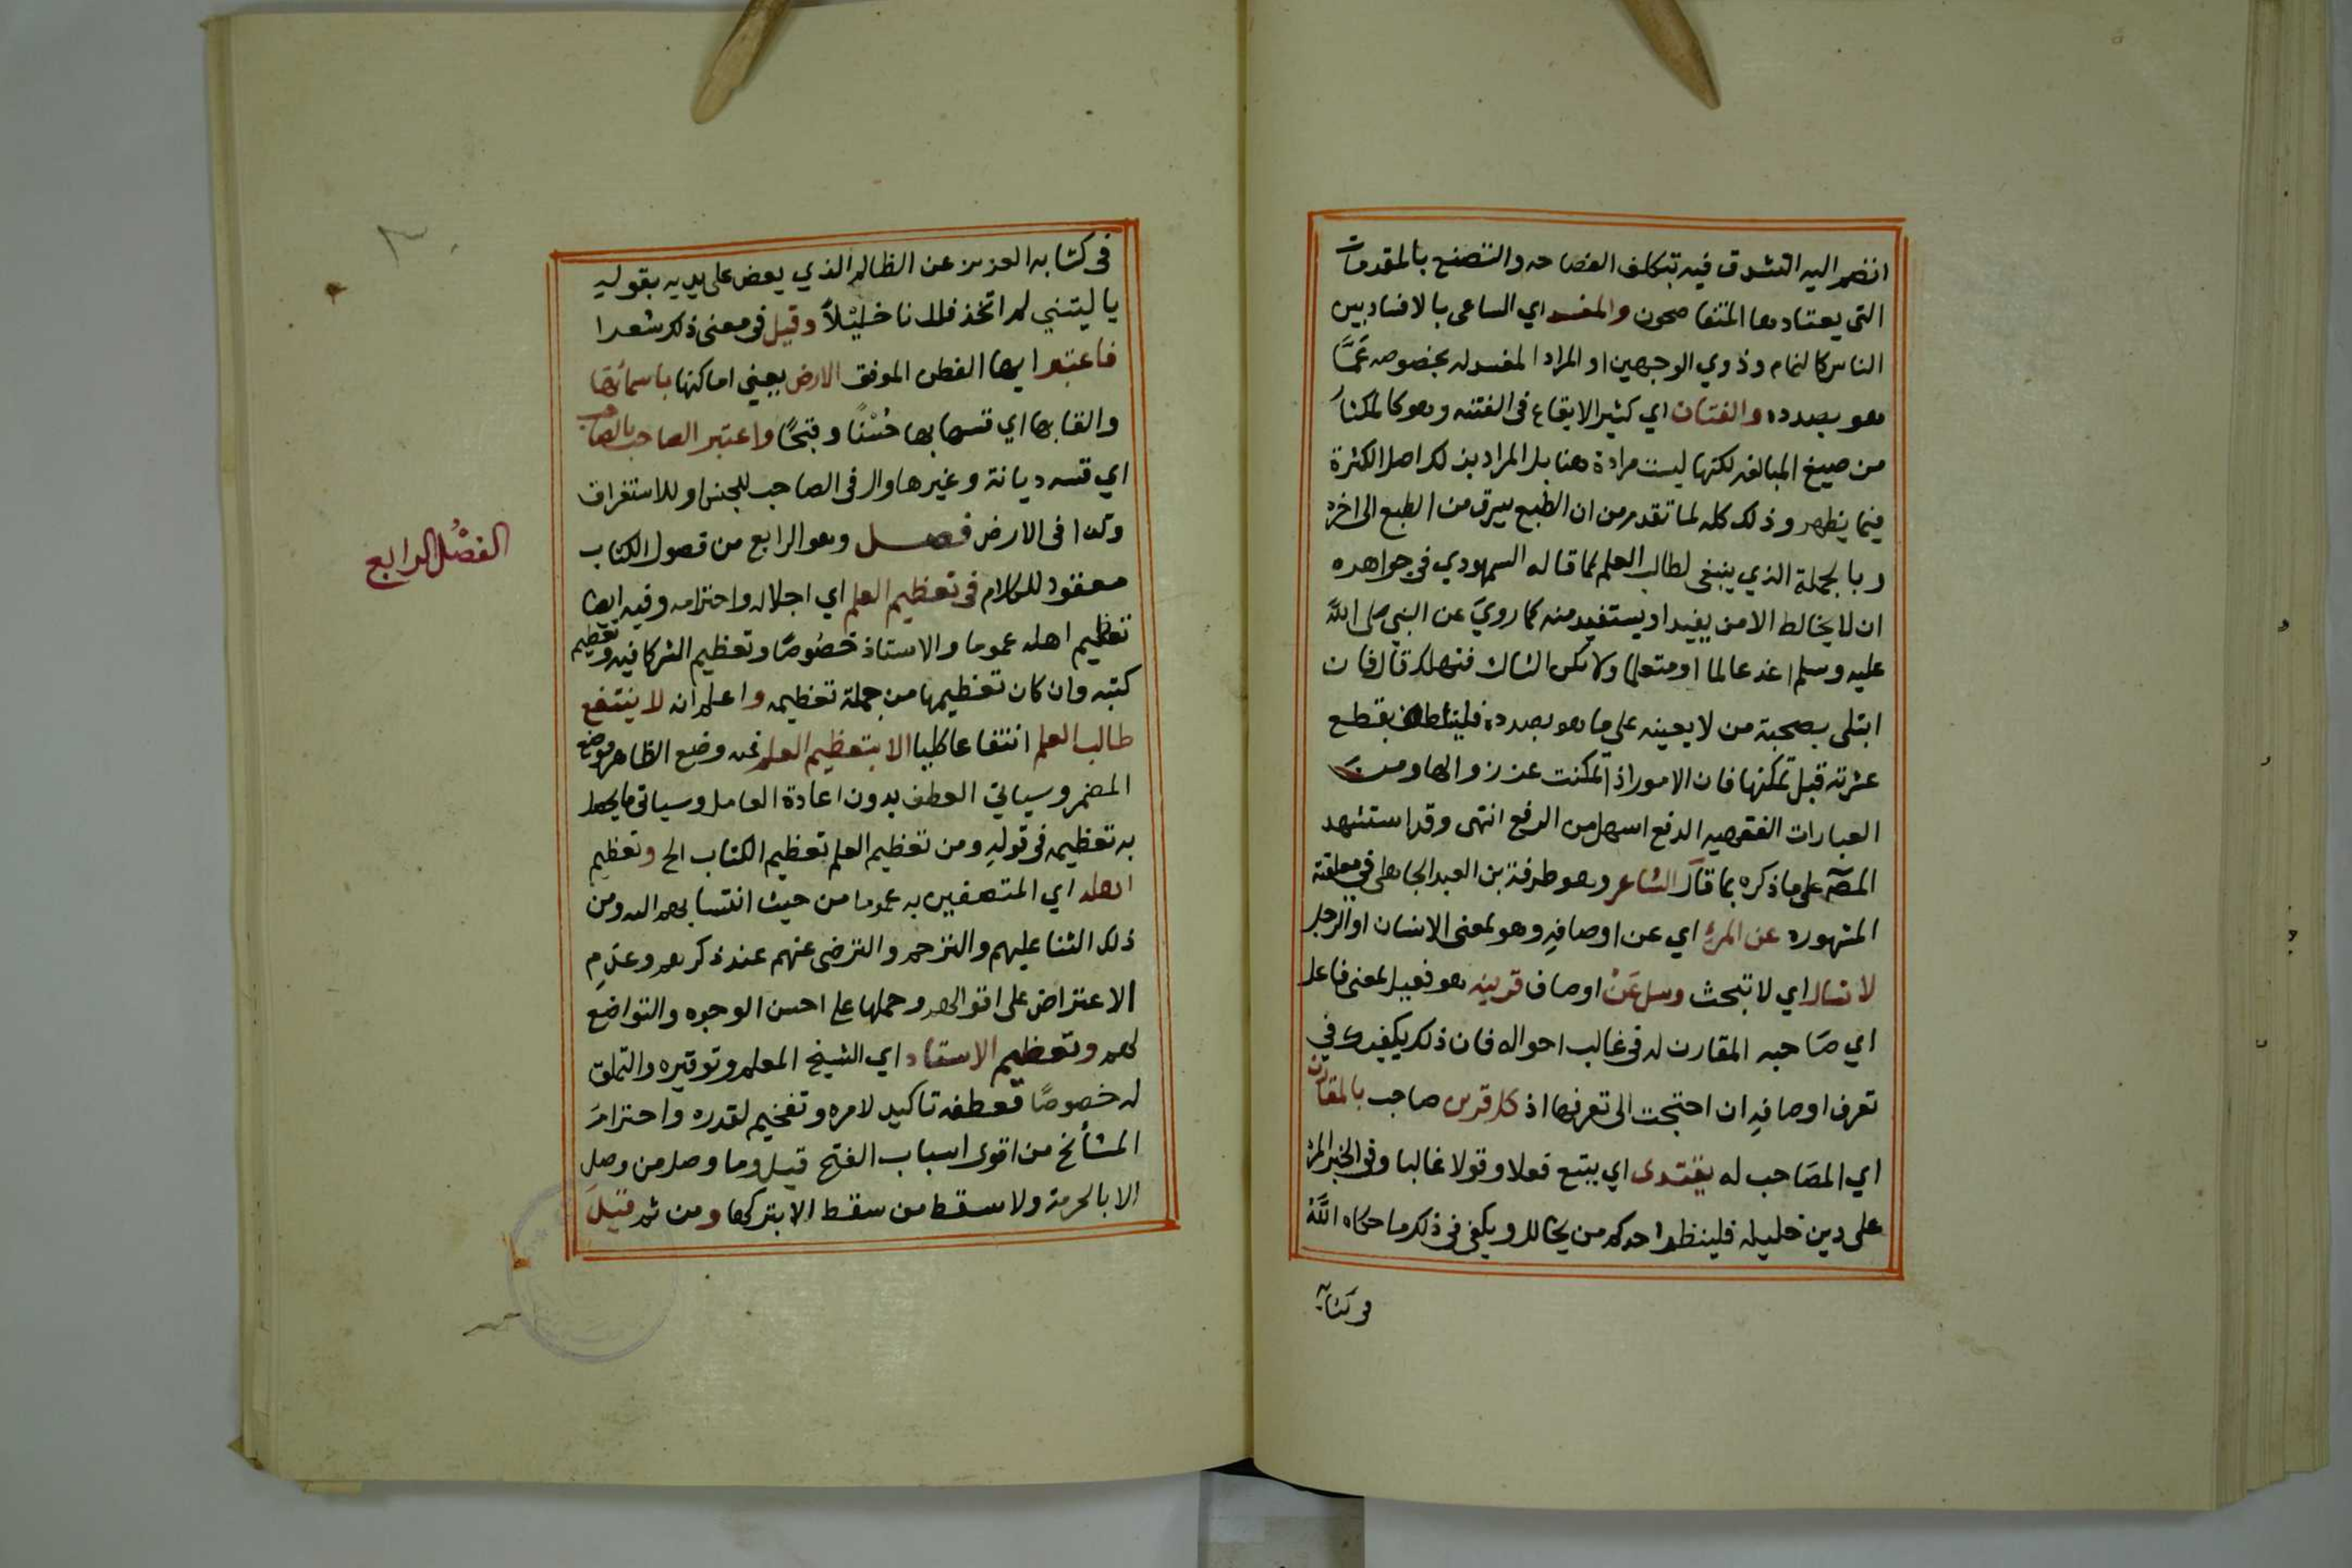 انضم اليه التشدق فيه بتكلف الفصاحه والتصنع بالمقدمات
التي يعتادها المتفاصحون والمفسد اي الساعى بالافساد بين
الناس كالنمام وذوي الوجهين او المراد المفسد له بخصوصه عمّا
هو بصدده والفتان اي كثير الايقاع فى الفتنه وهو كالمكثار
من صيغ المبالغه لكنها ليست مرادة هنا بل المراد بذلك اصل الكثرة
فيما يظهر وذلك كله لما تقدم من ان الطبع يسرق من الطبع الى اخره
وبالجملة الذي ينبغى لطالب العلم كما قاله السمهودي في جواهره
ان لا يخالط الا من يفيد او يستفيد منه كما رويَ عن النبي صلى اللّه
عليه وسلم اغد عالما او متعلما ولا تكن الثالث فتهلك قال فان
ابتلى بصحبة من لا يعينه على ما هو بصدده فليتلطف بقطع
عشرته قبل تمكنها فان الامور اذا تمكنت عز زوالها ومن
العبارات الفقهيه الدفع اسهل من الرفع انتهى وقد استشهد
المصّ على ما ذكره بما قال الشاعر وهو طرفة بن العبد الجاهلى في معلقته
المشهوره عن المرء اي عن اوصافه وهو بمعنى الانسان او الرجل
لا تسال اي لا تبحث وسل عَنْ اوصاف قرينه هو فعيل بمعنى فاعل
اي صاحبه المقارن له فى غالب احواله فان ذلك يكفيك في
تعرف اوصافه ان احتجت الى تعرفها اذ كل قرين صاحب بالمقارن
اي المصَاحب له يقتدى اي يتبع فعلا وقولا غالبا وفى الخبر المرء
على دين خليله فلينظر احدكم من يخالل ويكفى فى ذلك ما حكاه اللّهُ
في كتابه
فى كتابه العزيز عن الظالم الذي يعض على يديه بقوله
يا ليتني لم اتخذ فلانا خليْلًا وقيل فى معنى ذلك شعرا
فاعتبر ايها الفطن الموفق الارض يعني اماكنها باسمائها
والقابها اي قسها بها حُسْنًا وقبحًا واعتبر الصاحب بالصاحب
اي قسه ديانة وغيرها وال فى الصاحب للجنس او للاستغراق
وكذا فى الارض فصل وهو الرابع من فصول الكتاب
الفصْل الرابع
معقود للكلام فى تعظيم العلم اي اجلاله واحترامه وفيه ايضا
تعظيم اهله عموما والاستاذ خصُوصًا وتعظيم الشركا فيه وتعظيم
كتبه وان كان تعظيمها من جملة تعظيمه واعلم انه لا ينتفع
طالب العلم انتفاعا كليا الا بتعظيم العلم فيه وضع الظاهر موضع
المضمر وسياتي العطف بدون اعادة العامل وسياتى ما يحصل
به تعظيمه فى قوله ومن تعظيم العلم تعظيم الكتاب الخ وتعظيم
اهله اي المتصفين به عموما من حيث انتسابهم اليه ومن
ذلك الثنا عليهم والترحم والترضى عنهم عند ذكرهم وعدم
الاعتراض على اقوالهم وحملها على احسن الوجوه والتواضع
لهم وتعظيم الاستاد اي الشيخ المعلم وتوقيره والتملق
له خصوصًا فعطفه تاكيد لامره وتفخيم لقدره واحترام
المشائخ من اقوى اسباب الفتح قيل وما وصل من وصل
الا بالحرمة ولا سقط من سقط الا بتركها ومن ثم قيل